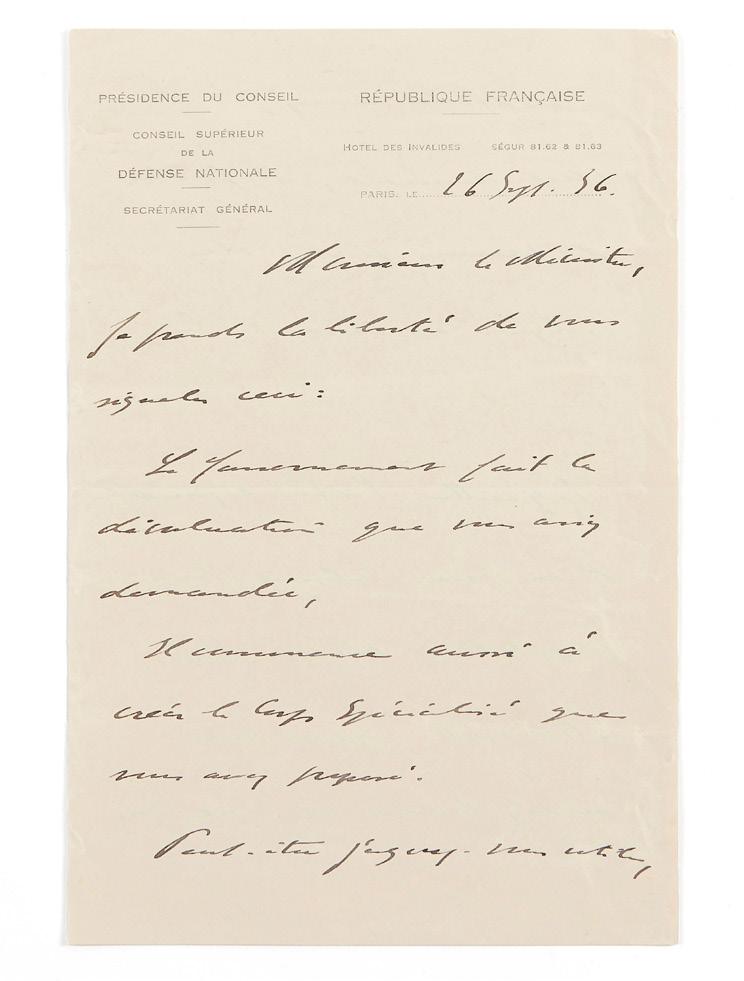 PRÉSIDENCE DU CONSEIL
CONSEIL SUPÉRIEUR
DE LA
DÉFENSE NATIONALE
SECRÉTARIAT GÉNÉRAL
RÉPUBLIQUE FRANÇAISE
HOTEL DES INVALIDES SÉGUR 81.62 & 81.63
PARIS, LE 26 Sept. 36.
Monsieur le Ministre,
Je prends la liberté de vous
signaler ceci :
Le Gouvernement fait la
dévaluation que vous aviez
demandée,
Il commence aussi à
créer le Corps Spécialisé que
vous avez proposé.
Peut-être jugerez-vous utile,